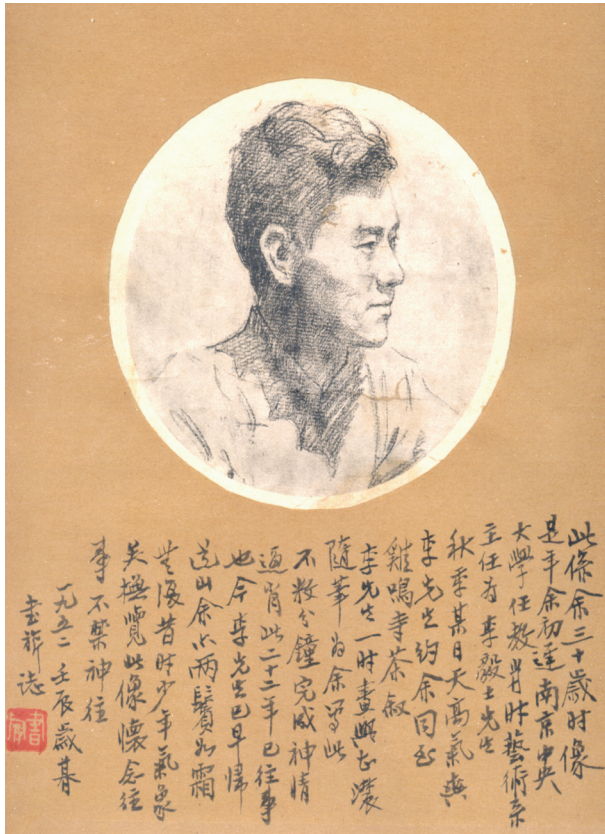 此係余三十歲时像
是年余初達南京中央
大學任教當时藝術系
主任为李毅士先生
秋季某日天高氣爽
李先生約余同至
雞鳴寺茶叙
李先生一时畫興至濃
隨筆为余写此
不数分鐘完成神情
逼肖此二十二年已往事
也今李先生已早歸
道山余亦两鬢如霜
無復昔时少年氣象
矣撫覽此像懷念往
事不禁神往
一九五二壬辰歲暮
書旂誌